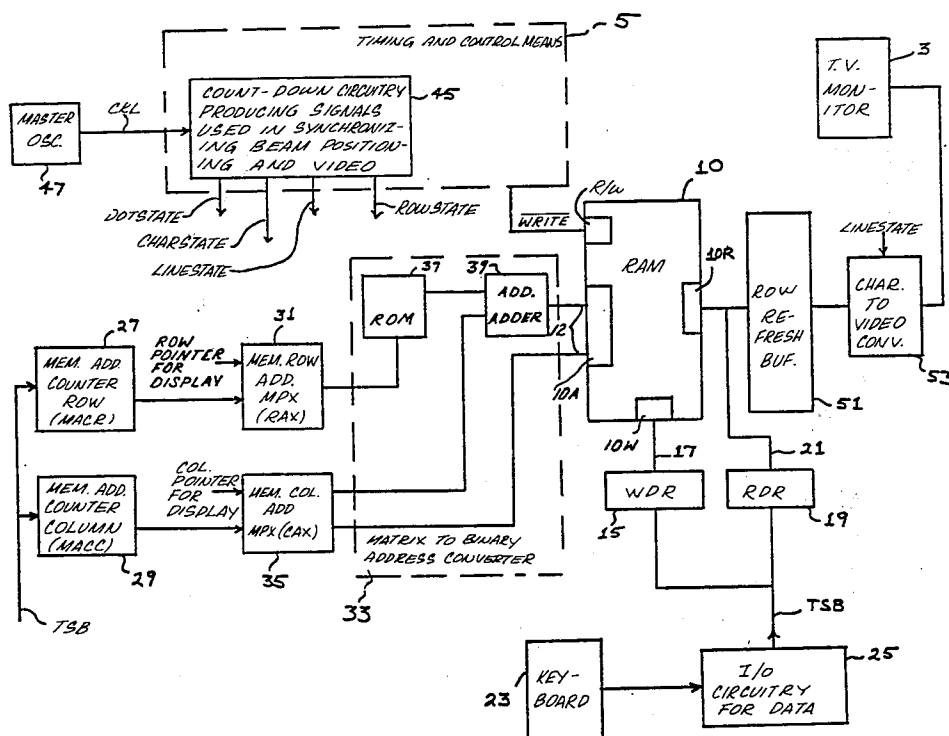 TIMING AND CONTROL MEANS
5
3
T.V.
MON-
ITOR
MASTER
OSC.
47
CKL
COUNT-DOWN CIRCUITRY
PRODUCING SIGNALS
USED IN SYNCHRONIZ-
ING BEAM POSITION-
ING AND VIDEO
45
DOTSTATE
CHARSTATE
LINESTATE
ROWSTATE
WRITE
R/W
10
RAM
10R
10A
10W
12
LINESTATE
ROW
RE-
FRESH
BUF.
51
CHAR.
TO
VIDEO
CONV.
53
27
MEM. ADD.
COUNTER
ROW
(MACR)
ROW
POINTER
FOR
DISPLAY
31
MEM. ROW
ADD.
MPX
(RAX)
37
ROM
39
ADD.
ADDER
MEM. ADD
COUNTER
COLUMN
(MACC)
29
COL.
POINTER
FOR
DISPLAY
MEM. COL.
ADD
MPX (CAX)
35
MATRIX TO BINARY
ADDRESS CONVERTER
33
TSB
17
WDR
15
21
RDR
19
TSB
23
KEY-
BOARD
25
I/O
CIRCUITRY
FOR DATA